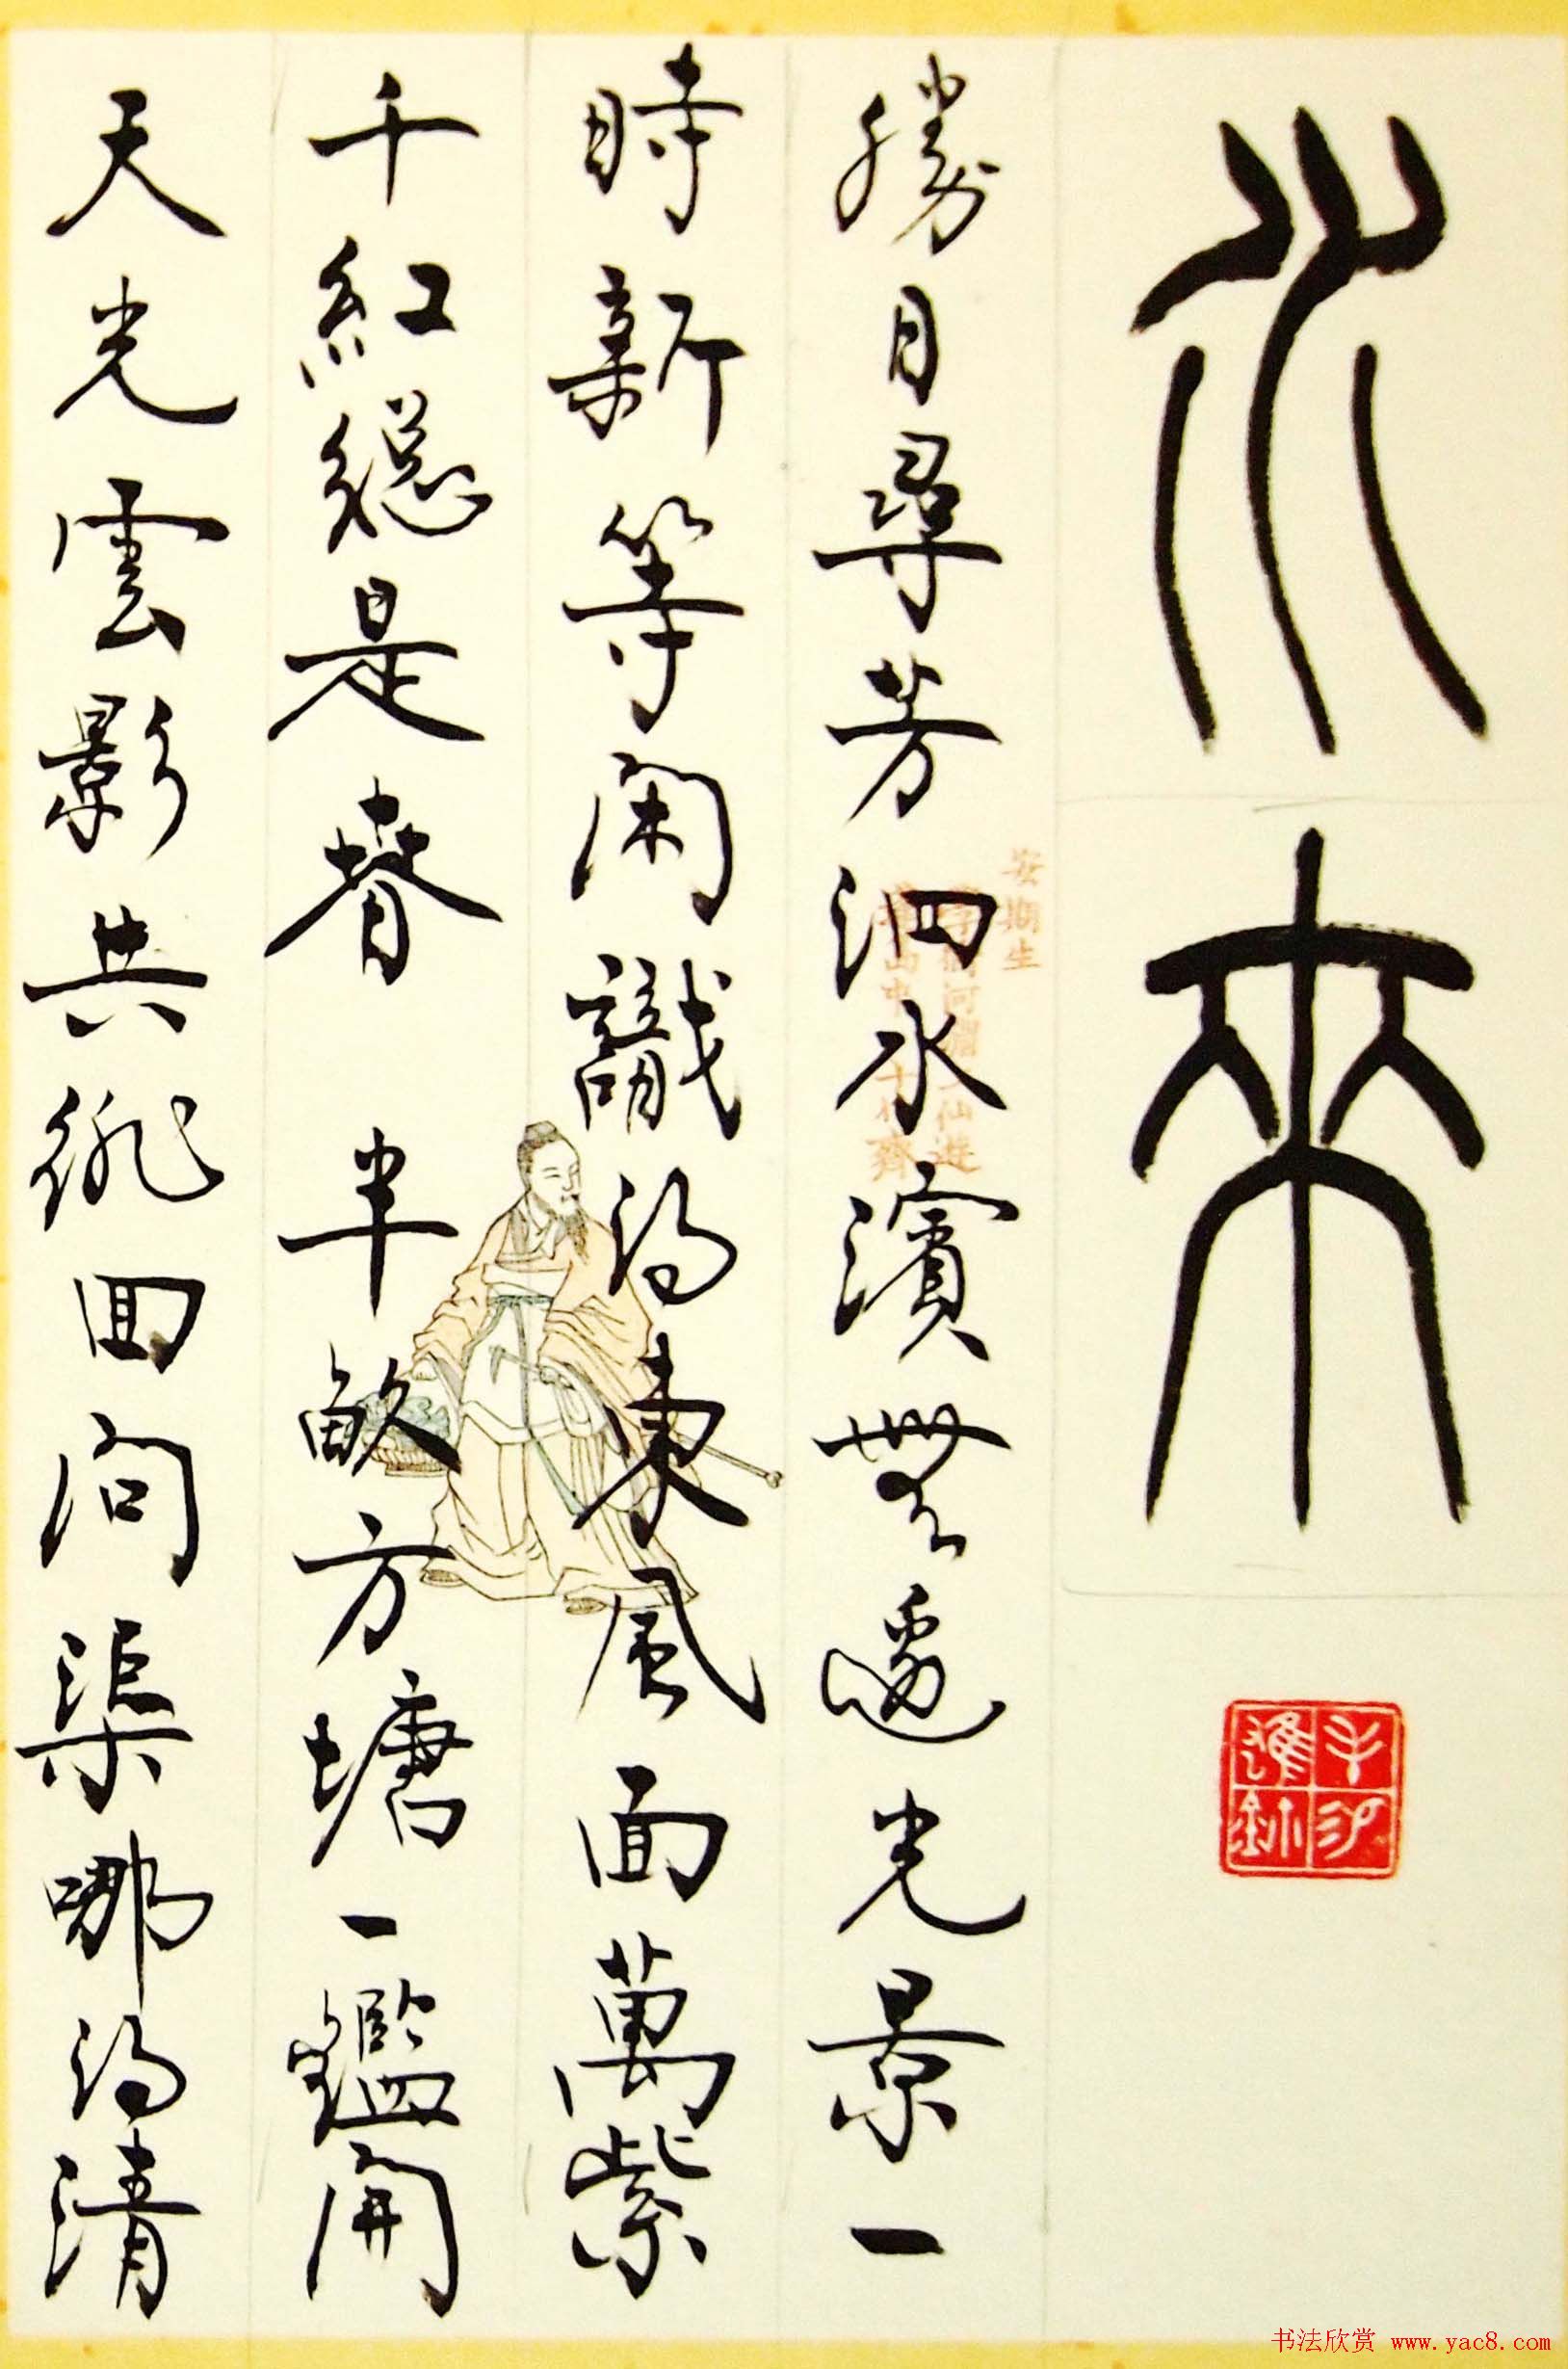 水來
勝日尋芳泗水濱無邊光景一
時新等閑識得東風面萬紫
千紅總是春 半畝方塘一鑑開
天光雲影共徘回問渠哪得清
安期生
书法欣赏 www.yac8.com